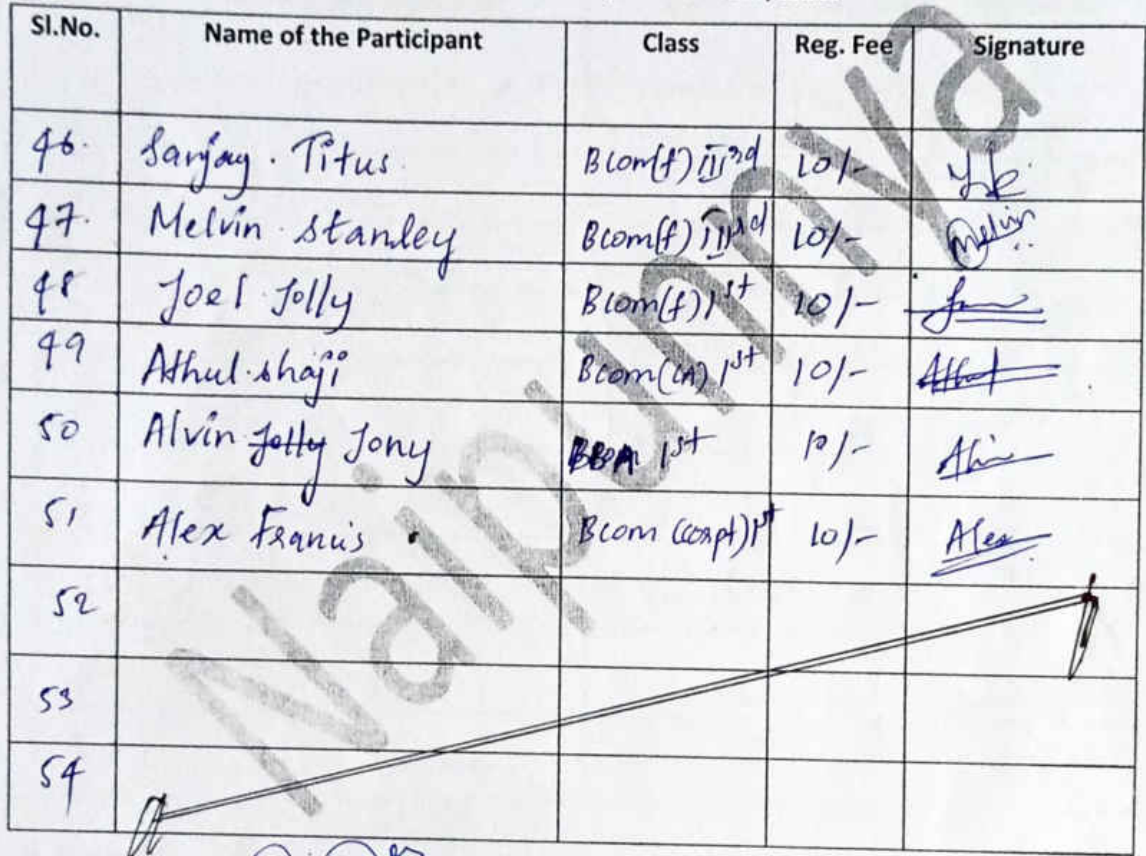 Sl.No. Name of the Participant Class Reg. Fee Signature
46. Sanjay. Titus. Bcom(f) III 3rd 10/-
47. Melvin stanley Bcom(f) III 3rd 10/- Melvin
48 Joel Jolly Bcom(f) 1st 10/-
49 Athul shaji Bcom(CA) 1st 10/- Athul
50 Alvin Jolly Jony BBA 1st 10/-
51 Alex Francis Bcom (corpt) 1st 10/- Alex
52
53
54
Naipunnya